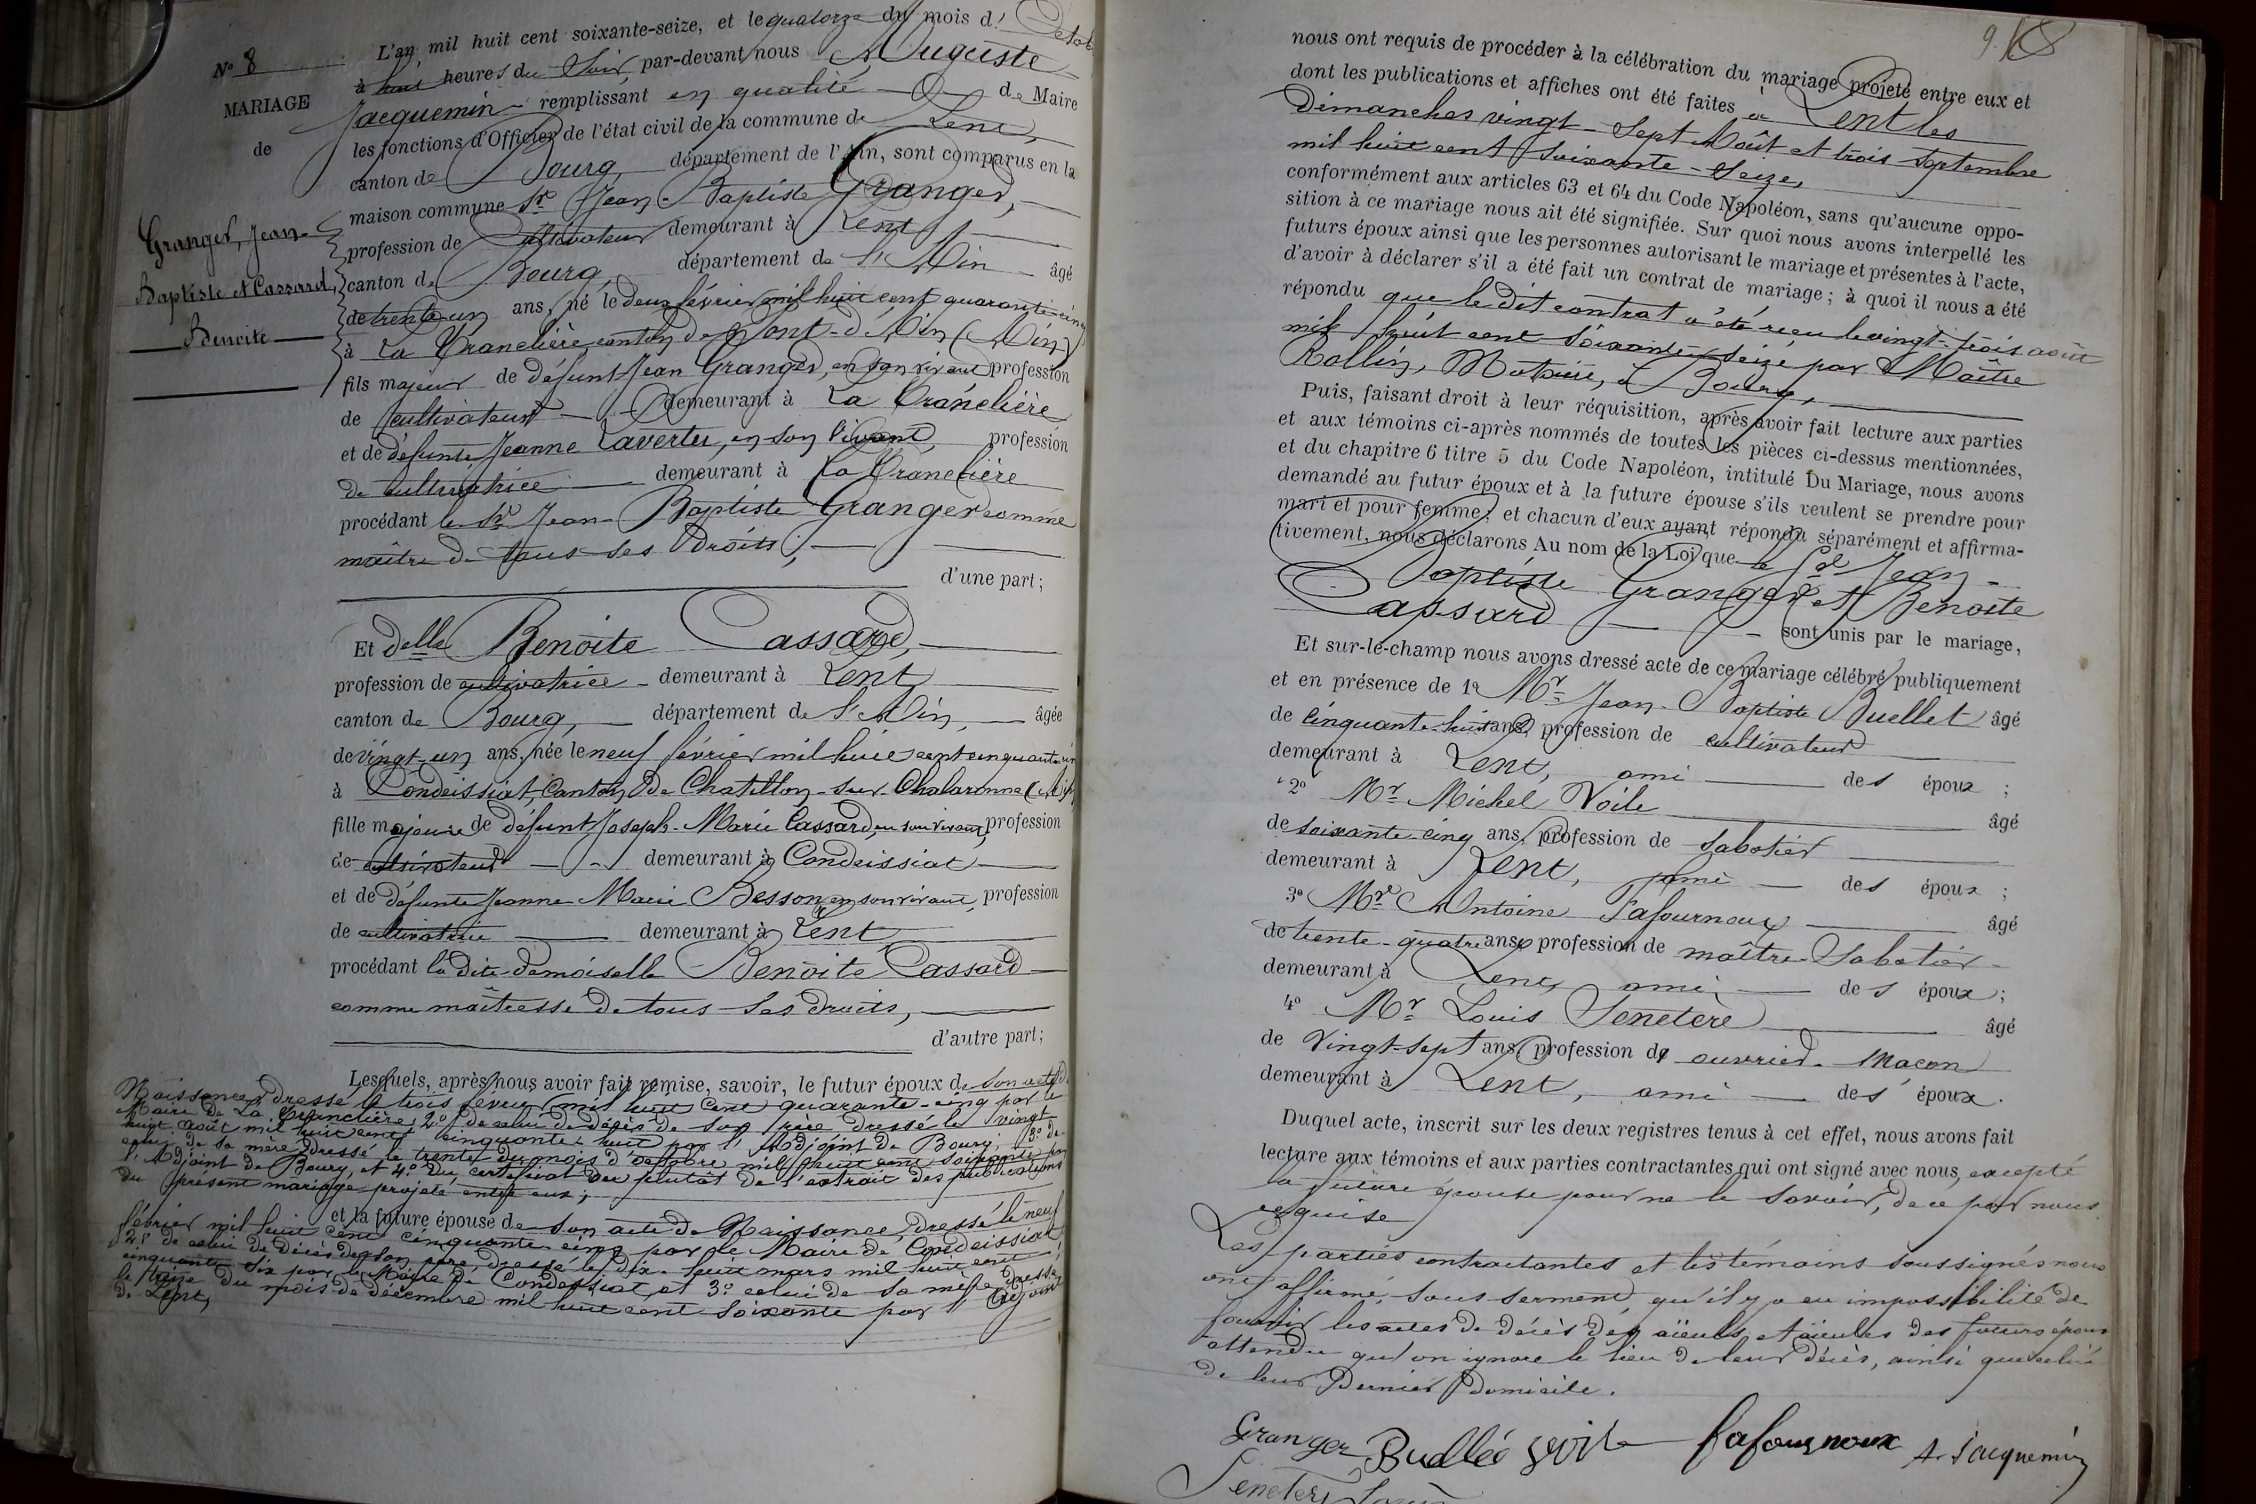 L'an mil huit cent soixante-seize, et le quatorze du mois d'
N° 8
à huit heures du Soir, par-devant nous Auguste
MARIAGE
Jacquemin remplissant en qualité de Maire
de
les fonctions d'Officier de l'état civil de la commune de Lent,
canton de Bourg département de l'Ain, sont comparus en la
maison commune Sr Jean-Baptiste Granger,
Granger, Jean-
profession de cultivateur demeurant à Lent
Baptiste et Cassard,
canton de Bourg département de l'Ain âgé
Benoite
de trente-un ans, né le deux février mil huit cent quarante-cinq
à La Tranclière canton de Pont-d'Ain (Ain)
fils majeur de défunt Jean Granger, en son vivant profession
de cultivateur demeurant à La Tranclière
et de défunte Jeanne Lavertu, en son vivant, profession
de cultivatrice demeurant à La Tranclière
procédant le Sr Jean-Baptiste Granger comme
maître de tous ses droits,
d'une part;
Et delle Benoite Cassard,
profession de cultivatrice demeurant à Lent
canton de Bourg, département de l'Ain, âgée
de vingt-un ans, née le neuf février mil huit cent cinquante
à Condeissiat, canton de Chatillon-sur-Chalaronne (Ain)
fille majeure de défunt Joseph-Marie Cassard, en son vivant, profession
de cultivateur demeurant à Condeissiat
et de défunte Jeanne Marie Besson en son vivant, profession
de cultivatrice demeurant à Lent
procédant la dite demoiselle Benoite Cassard
comme maîtresse de tous ses droits,
d'autre part;
Lesquels, après nous avoir fait remise, savoir, le futur époux de son acte de
Naissance, dressé le trois février mil huit cent quarante-cinq par le
Maire de La Tranclière 2° de celui de décès de son père dressé le vingt
huit août mil huit cent cinquante-huit par l'Adjoint de Bourg; 3° de
celui de sa mère dressé le trente du mois d'octobre mil huit cent soixante par
l'Adjoint de Bourg, et 4° du certificat ou plutôt de l'extrait des publications
du présent mariage projeté entre eux;
et la future épouse de son acte de Naissance, dressé le neuf
février mil huit cent cinquante cinq par le Maire de Condeissiat
2° de celui de décès de son père dressé le dix-huit mars mil huit cent
cinquante six par le Maire de Condeissiat et 3° celui de sa mère dressé
le treize du mois de décembre mil huit cent soixante par l'Adjoint
de Lent,
nous ont requis de procéder à la célébration du mariage projeté entre eux et
dont les publications et affiches ont été faites à Lent les
dimanches vingt-sept Août et trois septembre
mil huit cent soixante-Seize,
conformément aux articles 63 et 64 du Code Napoléon, sans qu'aucune oppo-
sition à ce mariage nous ait été signifiée. Sur quoi nous avons interpellé les
futurs époux ainsi que les personnes autorisant le mariage et présentes à l'acte,
d'avoir à déclarer s'il a été fait un contrat de mariage; à quoi il nous a été
répondu que le dit contrat a été reçu le vingt-trois août
mil huit cent soixante-seize par Maître
Rollin, Notaire, à Bourg,
Puis, faisant droit à leur réquisition, après avoir fait lecture aux parties
et aux témoins ci-après nommés de toutes les pièces ci-dessus mentionnées,
et du chapitre 6 titre 5 du Code Napoléon, intitulé Du Mariage, nous avons
demandé au futur époux et à la future épouse s'ils veulent se prendre pour
mari et pour femme; et chacun d'eux ayant répondu séparément et affirma-
tivement, nous déclarons Au nom de la Loi que le Sr Jean-
Baptiste Granger et Benoite
Cassard
sont unis par le mariage,
Et sur-le-champ nous avons dressé acte de ce mariage célébré publiquement
et en présence de 1° Mr Jean-Baptiste Buellet âgé
de cinquante-huit ans, profession de cultivateur
demeurant à Lent, ami des époux ;
2° Mr Michel Voile âgé
de soixante-cinq ans, profession de sabotier
demeurant à Lent, ami des époux ;
3° Mr Antoine Fafournoux âgé
de trente-quatre ans profession de maître-Sabotier
demeurant à Lent, ami des époux;
4° Mr Louis Senetere âgé
de Vingt-Sept ans, profession de ouvrier-maçon
demeurant à Lent, ami des époux.
Duquel acte, inscrit sur les deux registres tenus à cet effet, nous avons fait
lecture aux témoins et aux parties contractantes qui ont signé avec nous, excepté
la future épouse pour ne le savoir, de ce par nous
requise
Les parties contractantes et les témoins soussignés nous
ont affirmé, sous serment, qu'il y a eu impossibilité de
fournir les actes de décès des aïeuls et aïeules des futurs époux
attendu qu'on ignore le lieu de leur décès, ainsi que celui
de leur dernier domicile.
Granger Buellet Voile Fafournoux A. Jacquemin
Senetere Louis